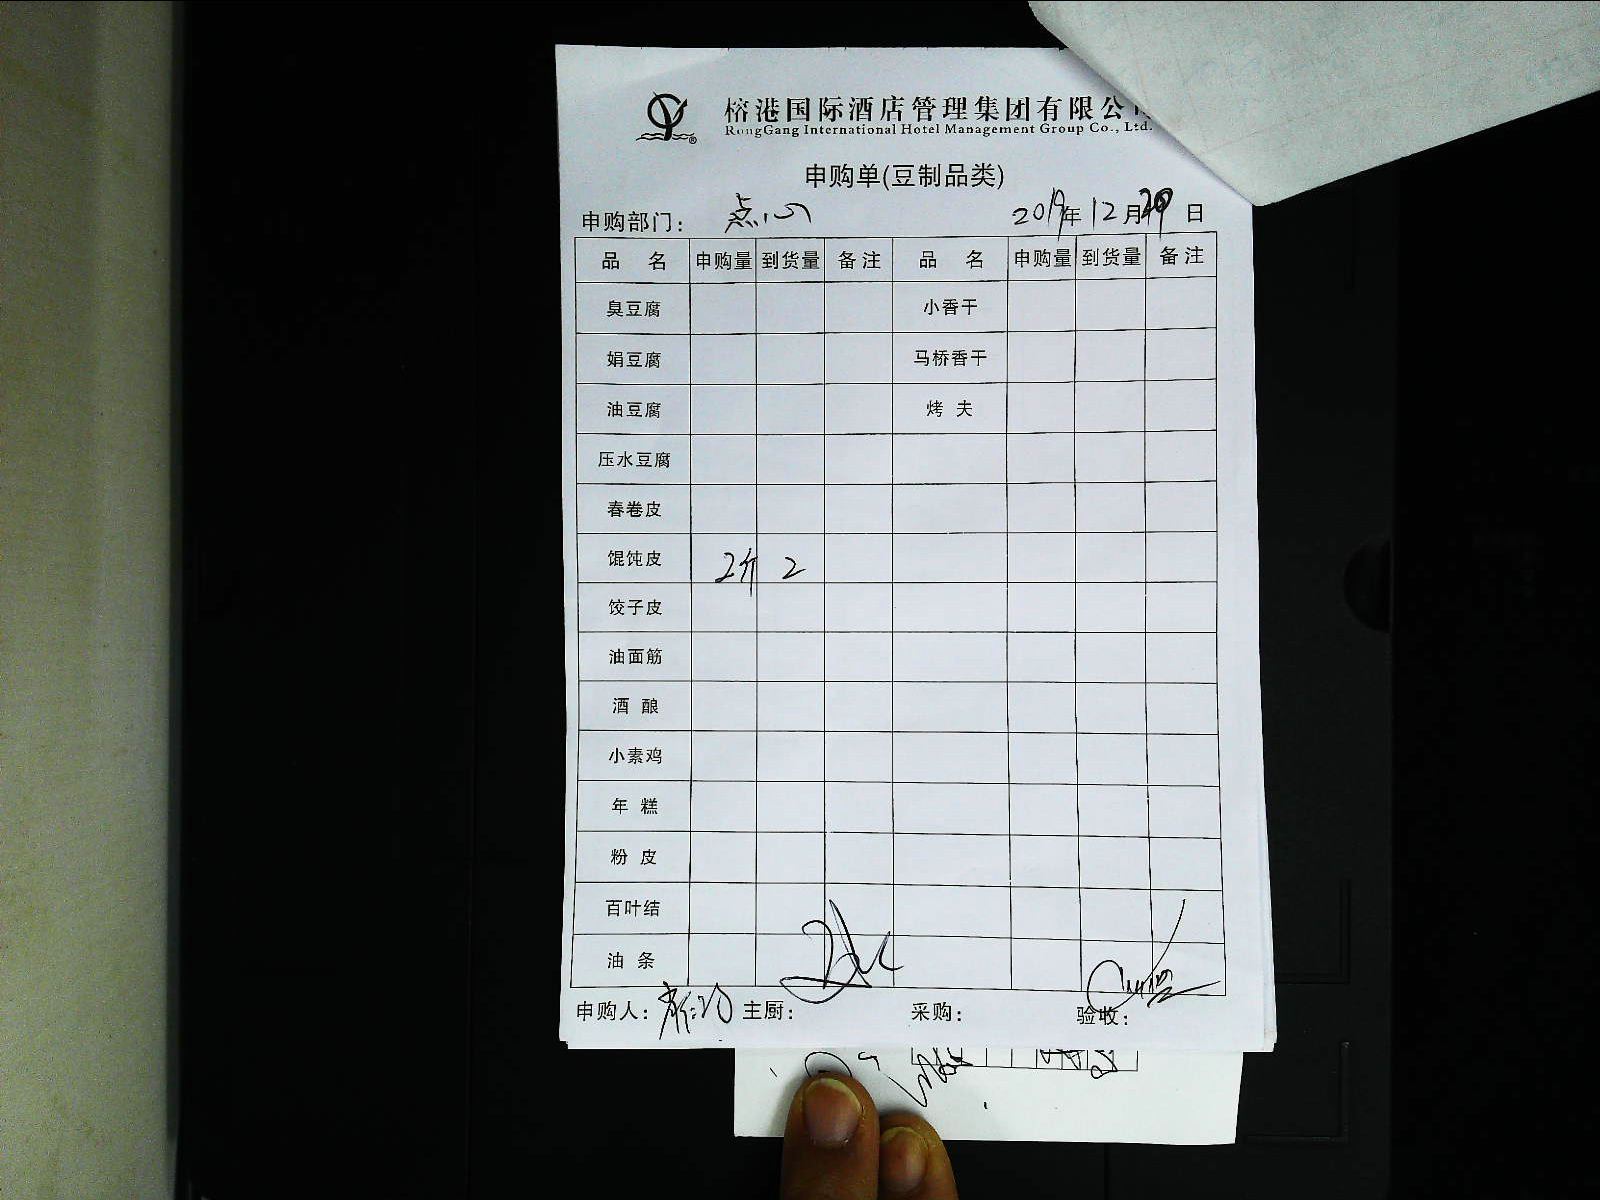 榕港国际酒店管理集团有限公
RongGang International Hotel Management Group Co., Ltd.
®
申购单(豆制品类)
申购部门: 点心 2019年12月 日
品 名 申购量 到货量 备注 品 名 申购量 到货量 备注
臭豆腐 小香干
娟豆腐 马桥香干
油豆腐 烤 夫
压水豆腐
春卷皮
馄饨皮 2斤 2
饺子皮
油面筋
酒 酿
小素鸡
年 糕
粉 皮
百叶结
油 条
申购人: 主厨: 采购: 验收: